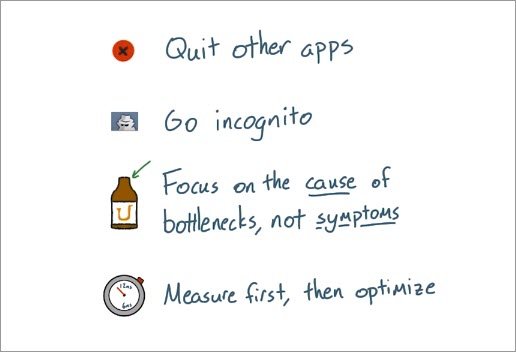 Quit other apps
Go incognito
Focus on the cause of
bottlenecks, not symptoms
Measure first, then optimize
12ms
6ms